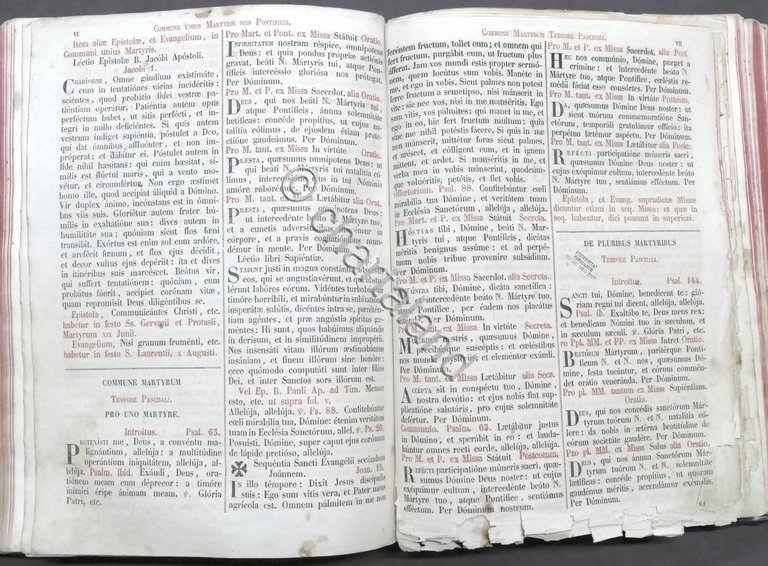 VI
COMMUNE UNIUS MARTYRIS NON PONTIFICIS.
Item aliæ Epistolæ, et Evangelium, in
Communi unius Martyris.
Léctio Epistolæ B. Jacóbi Apóstoli.
Jacobi 1.
CHARÍSSIMI, Omne gáudium existimáte,
cum in tentatiónes várias incidéritis:
sciéntes, quod probátio fídei vestræ pa-
tiéntiam operátur; Patiéntia autem opus
perféctum habet, ut sitis perfécti, et ín-
tegri in nullo deficiéntes. Si quis autem
vestrum índiget sapiéntia, póstulet a Deo,
qui dat ómnibus affluénter, et non im-
próperat: et dábitur ei. Póstulet autem in
fide nihil hæsitans: qui enim hæsitat, sí-
milis est flúctui maris, qui a vento mo-
vétur, et circumfértur. Non ergo æstímet
homo ille, quod accípiat áliquid a Dómino.
Vir duplex ánimo, incónstans est in ómni-
bus viis suis. Gloriétur autem frater hú-
milis in exaltatióne sua: dives autem in
humilitáte sua; quóniam sicut flos fœni
transíbit. Exórtus est enim sol cum ardóre,
et arefécit fœnum, et flos ejus décidit,
et decor vultus ejus depériit. Ita et dives
in itinéribus suis marcéscet. Beátus vir,
qui suffert tentatiónem: quóniam, cum
probátus fúerit, accípiet corónam vitæ,
quam repromísit Deus diligéntibus se.
Epistola, Communicántes Christi, etc.
habetur in festo Ss. Gervasii et Protasii,
Martyrum XIX Junii.
Evangelium, Nisi granum fruménti, etc.
habetur in festo S. Laurentii, X Augusti.
COMMUNE MARTYRUM
TEMPORE PASCHALI.
PRO UNO MARTYRE.
Introitus. Psal. 63.
PROTEXÍSTI me, Deus, a convéntu ma-
lignántium, allelúja: a multitúdine
operántium iniquitátem, allelúja, al-
lelúja. Psalm. ibid. Exáudi, Deus, ora-
tiónem meam cum déprecor: a timóre
inimíci éripe ánimam meam. ℣. Glória
Patri, etc.
Pro Mart. et Pont. ex Missa Státuit Oratio.
INFIRMITÁTEM nostram réspice, omnípotens
Deus: et quia pondus própriæ actiónis
gravat, beáti N. Mártyris tui, atque Pon-
tíficis intercéssio gloriósa nos prótegat.
Per Dóminum.
Pro M. et P. ex Missa Sacerdot. alia Oratio.
DEUS, qui nos beáti N. Mártyris tui,
atque Pontíficis, ánnua solemnitáte
lætíficas: concéde propítius, ut cujus na-
talítia cólimus, de ejúsdem étiam prote-
ctióne gaudeámus. Per Dóminum.
Pro M. tant. ex Missa In virtúte Oratio.
PRÆSTA, quæsumus omnípotens Deus: ut
qui beáti N. Mártyris tui natalítia có-
limus, intercessióne ejus in tui Nóminis
amóre roborémur. Per Dóminum.
Pro M. tant. ex Missa Lætábitur alia Orat.
PRÆSTA, quæsumus omnípotens Deus:
ut intercedénte beáto N. Mártyre tuo,
et a cunctis adversitátibus
córpore, et a pravis cogitatiónibus
mundémur in mente. Per Dóminum.
Léctio libri Sapiéntiæ.
STABUNT justi in magna constántia
eos, qui se angustiavérunt, et
labóres eórum. Vidéntes
timóre horríbili, et mirabúntur in subitatióne
insperátæ salútis, dicéntes intra se, pœni-
téntiam agéntes, et præ angústia spíritus ge-
méntes: Hi sunt, quos habúimus aliquándo
in derísum, et in similitúdinem impropérii.
Nos insensáti vitam illórum æstimabámus
insániam, et finem illórum sine honóre:
ecce quómodo computáti sunt inter fílios
Dei, et inter Sanctos sors illórum est.
Vel Ep. B. Pauli Ap. ad Tim. Memor
esto, etc. ut supra fol. v.
Allelúja, allelúja. ℣. Ps. 88. Confitebúntur
cœli mirabília tua, Dómine: étenim veritátem
tuam in Ecclésia Sanctórum, allel. ℣. Ps. 20.
Posuísti, Dómine, super caput ejus corónam
de lápide pretióso, allelúja.
✠ Sequéntia Sancti Evangélii secúndum
Joánnem. Joan. 15.
IN illo témpore: Dixit Jesus discípulis
suis: Ego sum vitis véra, et Pater meus
agrícola est. Omnem pálmitem in me non
COMMUNE MARTYRUM TEMPORE PASCHALI.
VII
feréntem fructum, tollet eum; et omnem qui
fert fructum, purgábit eum, ut fructum plus
áfferat. Jam vos mundi estis propter sermó-
nem, quem locútus sum vobis. Manéte in
me, et ego in vobis. Sicut palmes non potest
ferre fructum a semetípso, nisi mánserit in
vite: sic nec vos, nisi in me manséritis. Ego
sum vitis, vos pálmites: qui manet in me, et
ego in eo, hic fert fructum multum: quia
sine me nihil potéstis fácere. Si quis in me
non mánserit, mittétur foras sicut palmes,
et aréscet, et cólligent eum, et in ignem
mittent, et ardet. Si manséritis in me, et
verba mea in vobis mánserint, quodcúm-
que voluéritis, petétis, et fiet vobis.
Offertorium. Psal. 88. Confitebúntur cœli
mirabília tua, Dómine, et veritátem tuam
in Ecclésia Sanctórum, allelúja, allelúja.
Pro Mart. et P. ex Missa Státuit Secreta.
HÓSTIAS tibi, Dómine, beáti N. Már-
tyris tui, atque Pontíficis, dicátas
méritis benígnus assúme: et ad perpé-
tuum nobis tríbue proveníre subsídium.
Per Dóminum.
Pro M. et P. ex Missa Sacerdot. alia Secreta.
MÚNERA tibi, Dómine, dicáta sanctífica:
et intercedénte beáto N. Mártyre tuo,
atque Pontífice, per éadem nos placátus
inténde. Per Dóminum.
Pro M. tant. ex Missa In virtúte Secreta.
nostris, quæsumus Dómine,
susceptis: et cœléstibus
nos munda et cleménter exáudi.
Per Dóminum.
Pro M. tant. ex Missa Lætábitur alia Secr.
ACCÉPTA sit in conspéctu tuo, Dómine
nostra devótio: et ejus nobis fiat sup-
plicatióne salutáris, pro cujus solemnitáte
defértur. Per Dóminum.
Communio. Psalm. 63. Lætábitur justus
in Dómino, et sperábit in eo: et laudabú-
buntur omnes recti corde, allelúja, allelúja.
Pro M. et P. ex Missa Státuit Postcomm.
REFÉCTI participatióne múneris sacri, quæ-
sumus Dómine Deus noster: ut cujus
exéquimur cultum, intercedénte beáto N.
Mártyre tuo, atque Pontífice, sentiámus
efféctum. Per Dóminum nostrum.
Pro M. et P. ex Missa Sacerdot. alia Post.
HÆC nos commúnio, Dómine, purget a
crímine: et intercedénte beáto N.
Mártyre tuo, atque Pontífice, cœléstis re-
médii fáciat esse consórtes. Per Dóminum.
Pro M. tant. ex Missa In virtúte Postcom.
DA, quæsumus Dómine Deus noster: ut
sicut tuórum commemoratióne San-
ctórum, temporáli gratulámur offício: ita
perpétuo lætémur aspéctu. Per Dóminum.
Pro M. tant. ex Missa Lætábitur alia Postc.
REFÉCTI participatióne múneris sacri,
quæsumus Dómine Deus noster: ut
cujus exéquimur cultum, intercedénte beáto
N. Mártyre tuo, sentiámus efféctum. Per
Dóminum.
Epistola, et Evang. supradictæ Missæ
dicuntur etiam in seq. Missa: et quæ in
seq. habentur, dici possunt in superiori.
DE PLURIBUS MARTYRIBUS
TEMPORE PASCHALI.
Introitus. Psal. 144.
SANCTI tui, Dómine, benedícent te: gló-
riam regni tui dicent, allelúja, allelúja.
Psal. ib. Exaltábo te, Deus meus rex:
et benedícam Nómini tuo in sæculum, et
in sæculum sæculi. ℣. Glória Patri, etc.
Pro Ppl. MM. et PP. ex Missa Intret Oratio.
BEATÓRUM Mártyrum, paritérque Pontí-
ficum N. et N. nos, quæsumus Dó-
mine, festa tueántur, et eórum comménn-
det orátio veneránda. Per Dóminum.
Pro pl. MM. tantum ex Missa Sapiéntiam
Oratio.
DEUS, qui nos concédis sanctórum Már-
tyrum tuórum N. et N. natalítia có-
lere; da nobis in ætérna beatitúdine de
eórum societáte gaudére. Per Dóminum.
Pro pl. MM. ex Missa Salus alia Oratio.
DEUS, qui nos ánnua Sanctórum Már-
tyrum tuórum N. et N. solemnitáte
lætíficas: concéde propítius, ut quorum
gaudémus méritis, accendámur exémplis.
Per Dóminum.
61
© chartaland